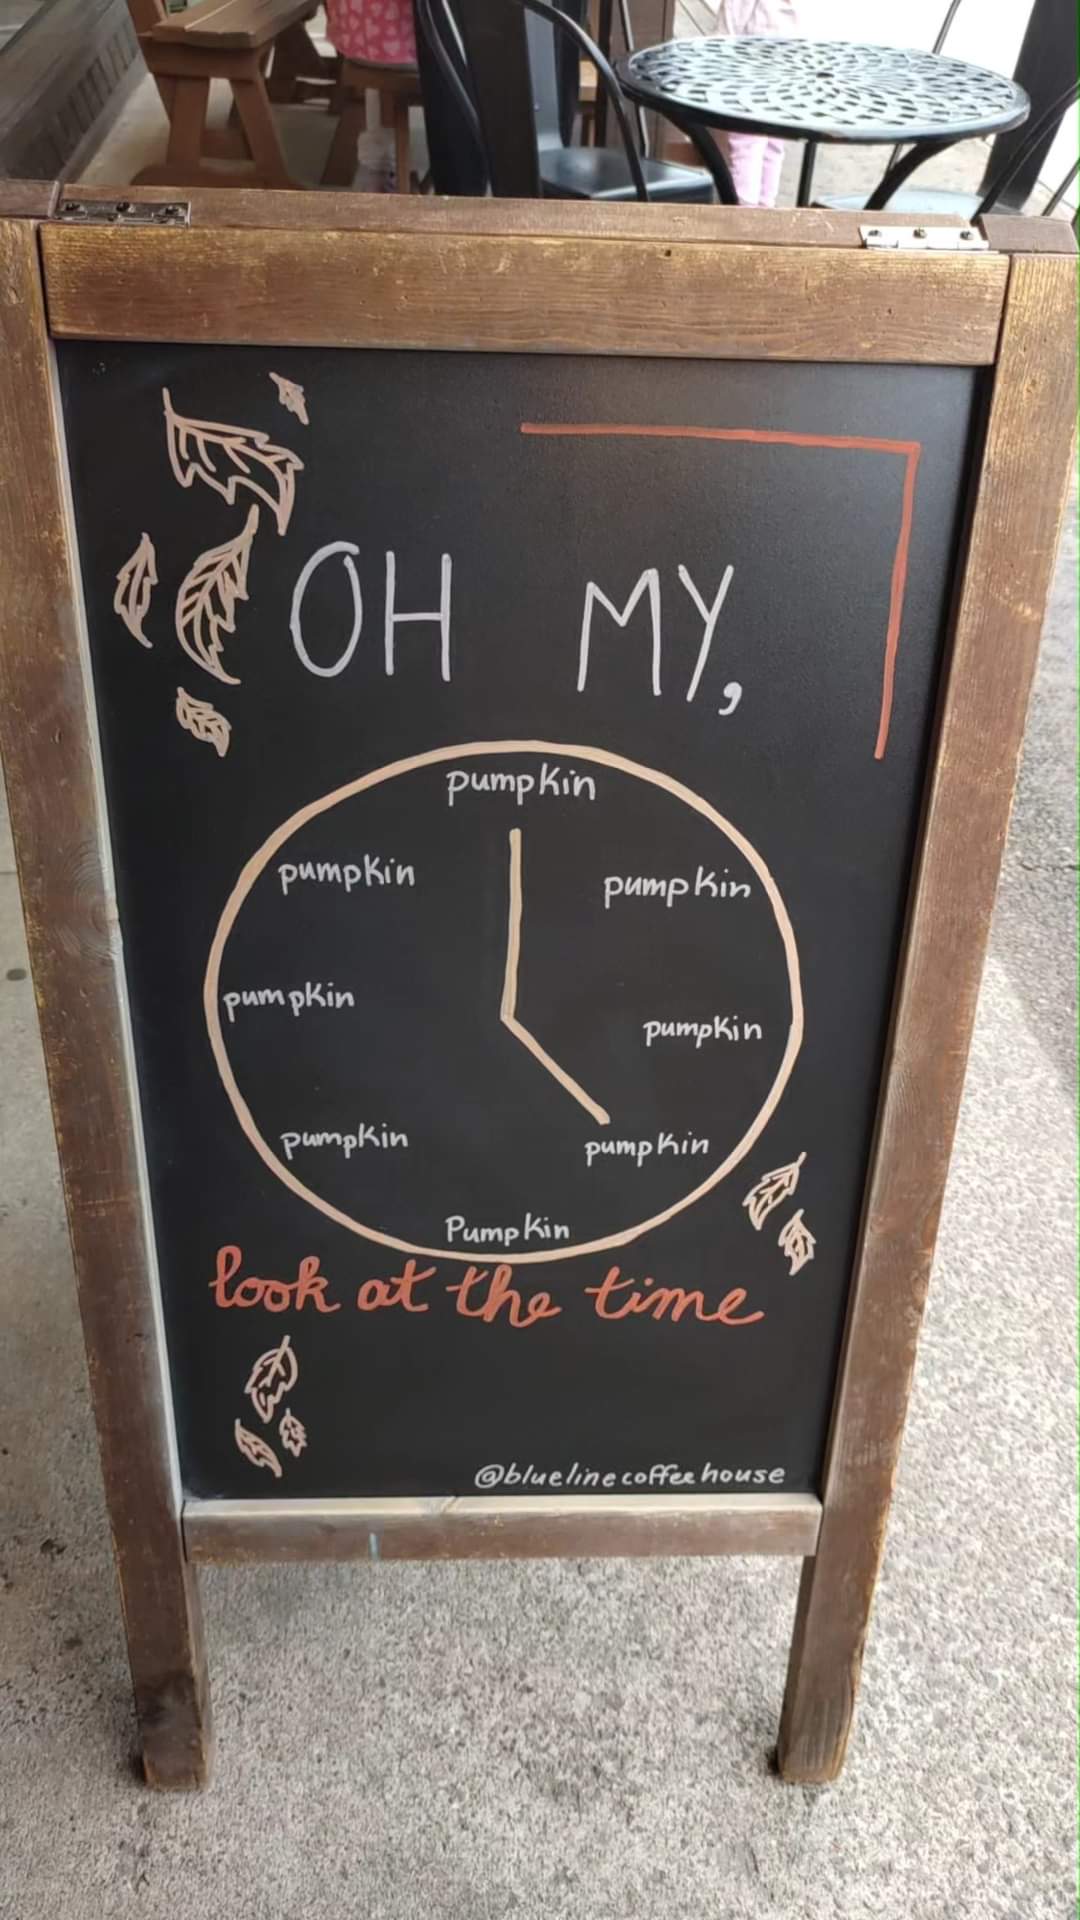 OH MY,
pumpkin
pumpkin
pumpkin
pumpkin
pumpkin
pumpkin
pumpkin
Pumpkin
look at the time
@bluelinecoffeehouse